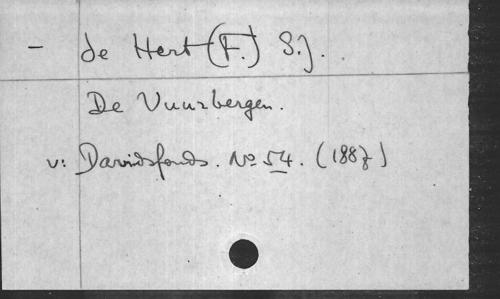 - de Hert (F.) S.J.
De Vuurbergen.
v: Davidsfonds. No 54. (1887)